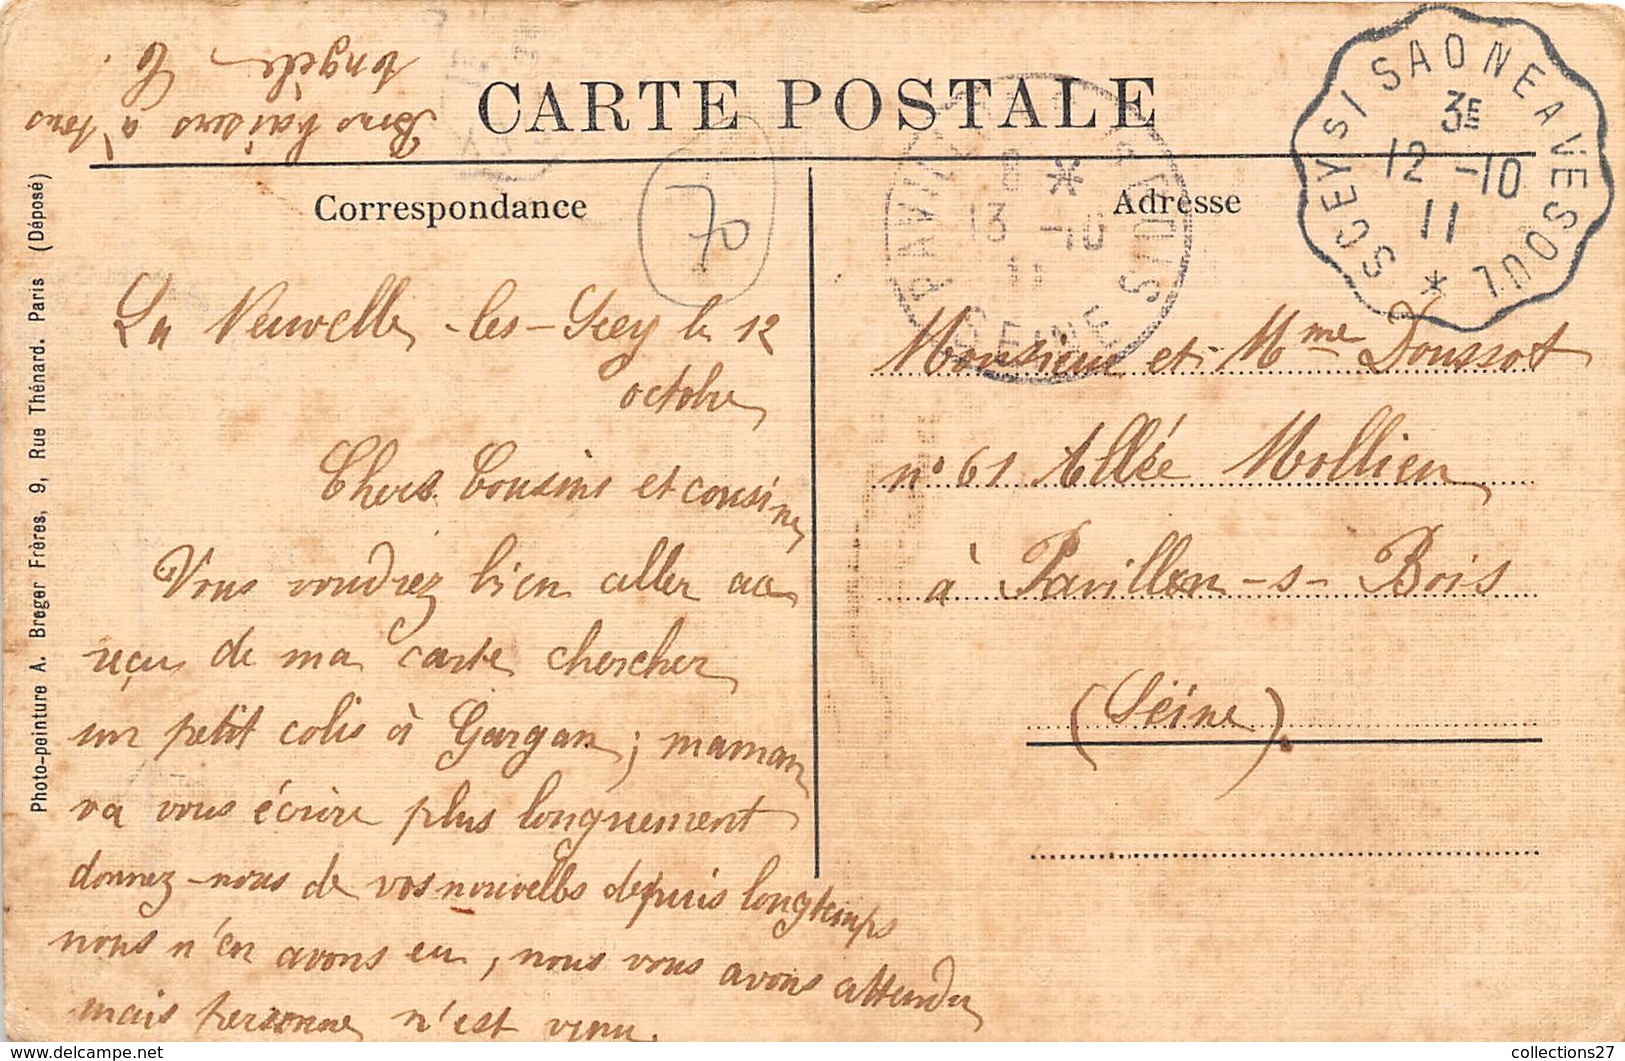 CARTE POSTALE
Correspondance
Adresse
SCEYS/SAONE A VESOUL
3E
12 -10
11
*
PAVILLONS S BOIS
8 *
13 -10
11
SEINE
70
La Neuvelle-les-Scey le 12
octobre
Chers Cousins et cousine
Vous voudrez bien aller au
reçu de ma carte chercher
un petit colis à Gargan ; maman
va vous écrire plus longuement
donnez-nous de vos nouvelles depuis longtemps
nous n'en avons eu, nous vous avons attendu
mais personne n'est venu.
Bons baisers à tous
Angèle
C.
Monsieur et Mme Doussot
n° 61 Allée Mollien
à Pavillon-s-Bois
(Séine).
Photo-peinture A. Breger Frères, 9, Rue Thénard. Paris (Déposé)
https://www.delcampe.net
collections27